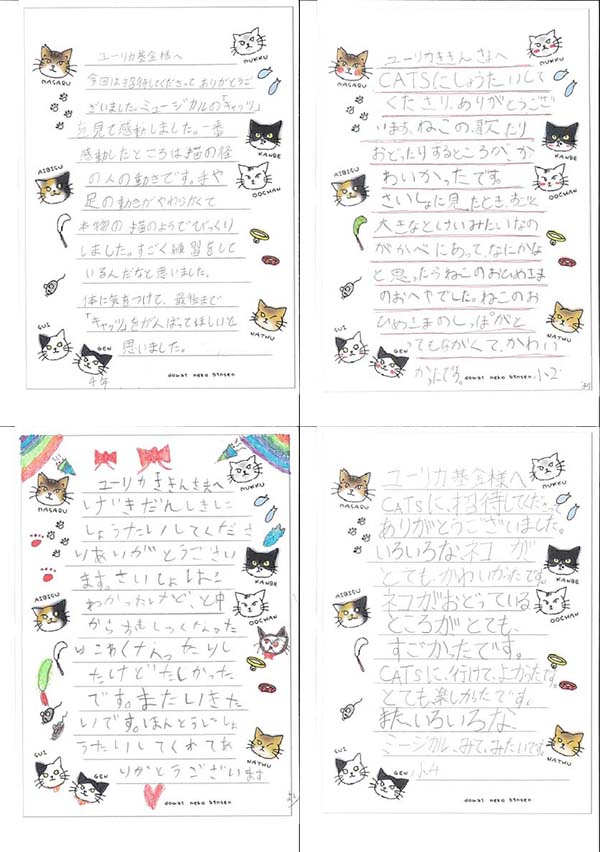 ユーリカ基金様へ
今回は招待してくださって ありがとうご
ざいました。ミュージカルの「キャッツ」
を見て感動しました。一番
感動したところは猫の役
の人の動きです。手や
足の動きがやわらかくて
本物の猫のようでびっくり
しました。すごく練習をして
いるんだなと思いました。
体に気をつけて、最後まで
「キャッツ」をがんばってほしいと
思いました。
4年
MASARU
MUKKU
KANBE
AIBISU
OOCHAN
SUI
GEN
NATHU
dowai neko binsen
ユーリカききん さまへ
CATSにしょうたいして
くださり、ありがとうござ
います。ねこの、歌たり
おどったりするところが、か
わいかったです。
さいしょに見たとき、
大きなとけいみたいなの
がかべにあって、なにかな
と思ったらねこのおひめさま
のおへやでした。ねこのお
ひめさまのしっぽがと
ってもながくて、かわい
かったです。
小2
MASARU
MUKKU
KANBE
AIBISU
OOCHAN
SUI
GEN
NATHU
dowai neko binsen
ユーリカききんさまへ
げきだんしきに
しょうたいしてくださ
りありがとうござい
ます。さいしょは
わかったけど、と中
からおもしろくなった
りこわくなったりし
たけどたのしかった
です。またいきた
いです。ほんとうにしょ
うたいしてくれてあ
りがとうございます
MASARU
MUKKU
KANBE
AIBISU
OOCHAN
SUI
GEN
NATHU
dowai neko binsen
ユーリカ基金様へ
CATSに、招待してくださって
ありがとうございました。
いろいろな、ネコが
とても、かわいかったです。
ネコがおどっている
ところがとても
すごかったです。
CATSに、行けて、よかったです。
とても楽しかったです。
また、いろいろな
ミージカル、みて、みたいです。
小4
MASARU
MUKKU
KANBE
AIBISU
OOCHAN
SUI
GEN
NATHU
dowai neko binsen